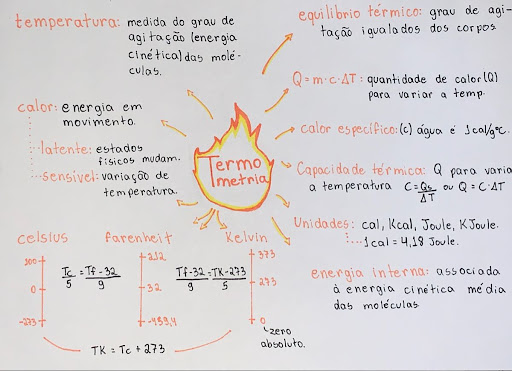 temperatura: medida do grau de
agitação (energia
cinética) das molé-
culas.
equilíbrio térmico: grau de agi-
tação igualados dos corpos.
Q = m·c·ΔT: quantidade de calor (Q)
para variar a temp.
calor: energia em
movimento.
latente: estados
físicos mudam.
sensível: variação de
temperatura.
Termo
metria
calor específico: (c) água é 1cal/g°c.
Capacidade térmica: Q para varia
a temperatura C = Qs/ΔT ou Q = C·ΔT
Unidades: cal, Kcal, Joule, KJoule.
1cal = 4,18 Joule.
energia interna: associada
à energia cinética média
das moléculas
celsius farenheit Kelvin
100 212 373
Tc/5 = Tf-32/9 Tf-32/9 = TK-273/5
0 32 273
-273 -459,4 0
zero
absoluto.
TK = Tc + 273